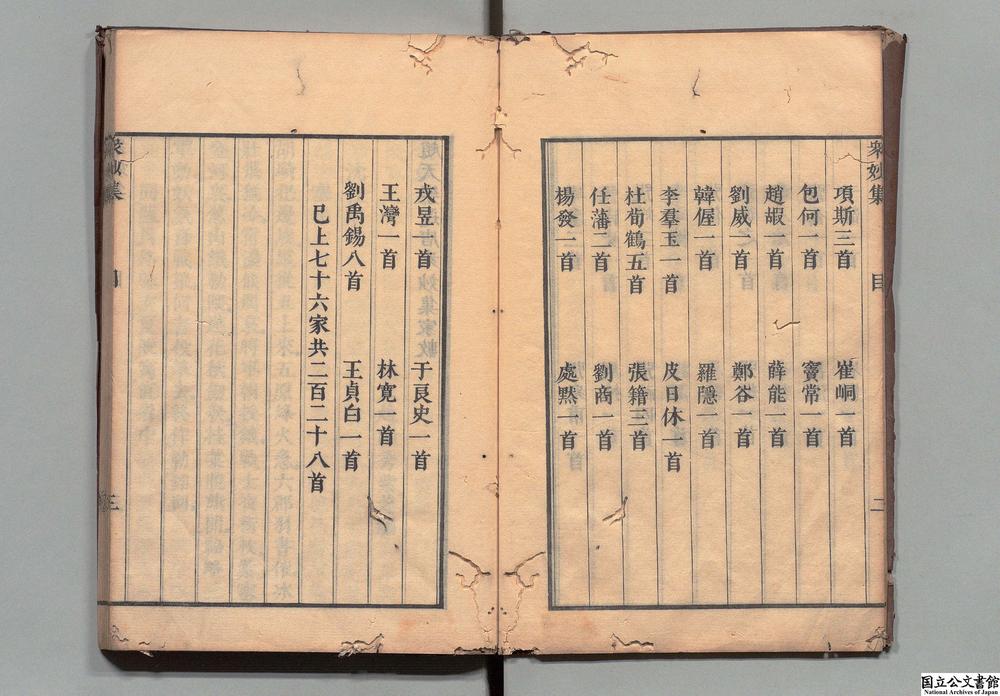 衆妙集 目 二
項斯三首 崔峒一首
包何一首 竇常一首
趙嘏一首 薛能一首
劉威一首 鄭谷一首
韓偓一首 羅隱一首
李羣玉一首 皮日休一首
杜荀鶴五首 張籍三首
任藩二首 劉商一首
楊發一首 處默一首
戎昱一首 于良史一首
王灣一首 林寬一首
劉禹錫八首 王貞白一首
已上七十六家共二百二十八首
衆妙集 目 三
国立公文書館
National Archives of Japan